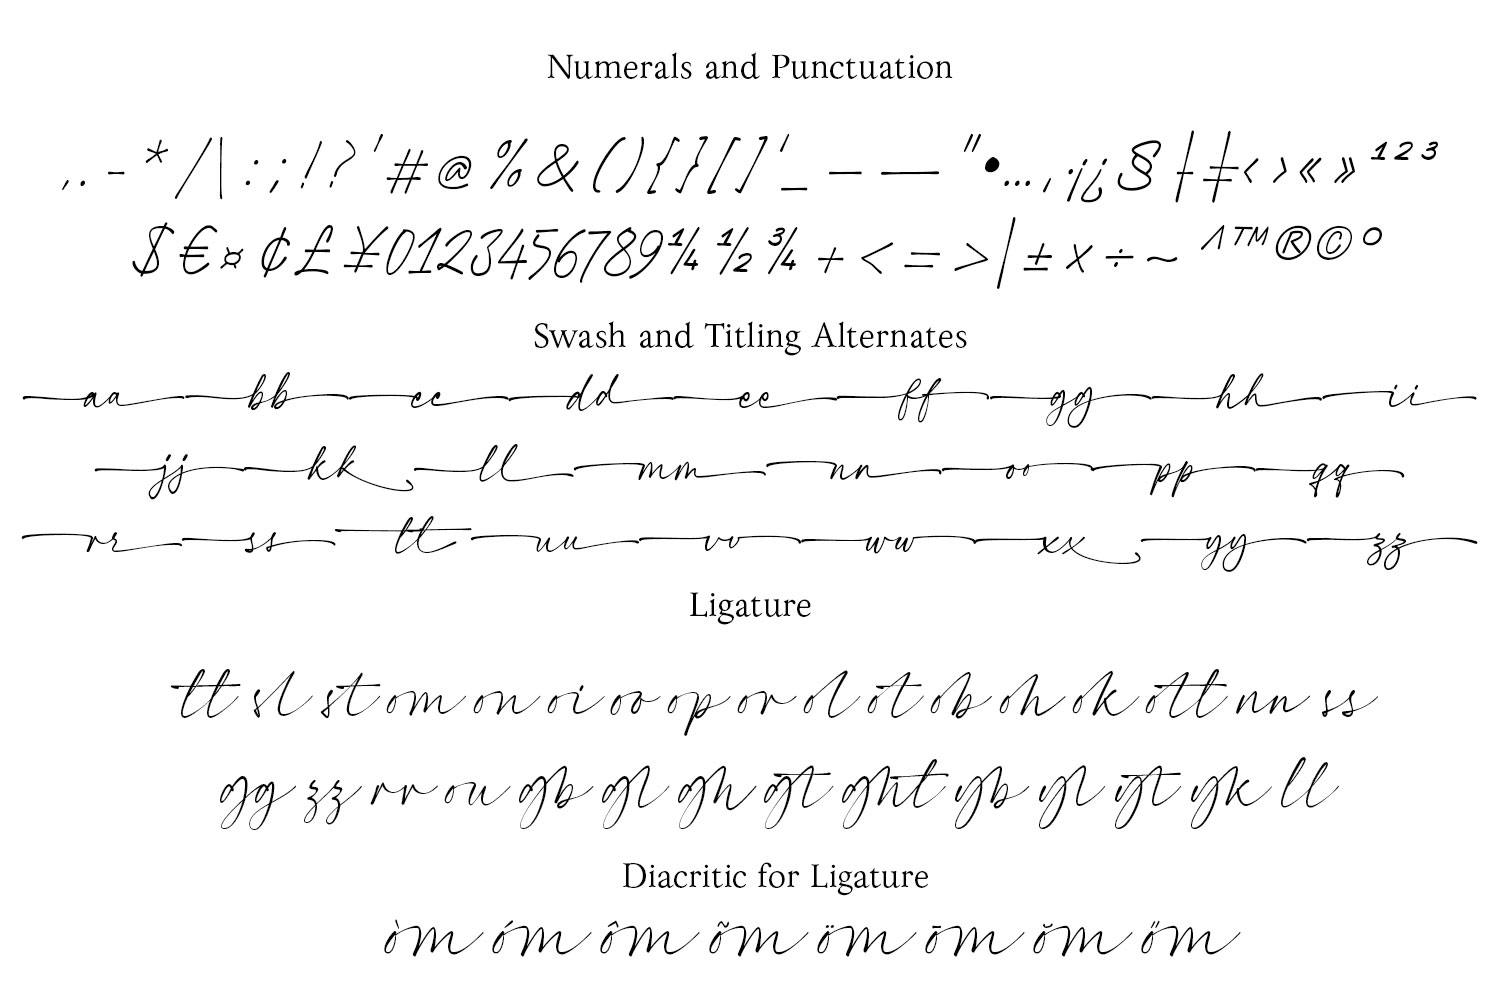 Numerals and Punctuation
,.-*/\:;!?'#@%&(){}[]'_–—"•…‚·¡¿§†‡‹›«»¹²³
$€¤¢£¥0123456789¼½¾+<=>|±×÷~^™®©°
Swash and Titling Alternates
aa bb cc dd ee ff gg hh ii
jj kk ll mm nn oo pp qq
rr ss tt uu vv ww xx yy zz
Ligature
tt sl st om on oi oo op or ol ot ob oh ok ott nn ss
gg zz rr ou gb gl gh gt ght yb yl yt yk ll
Diacritic for Ligature
òm óm ôm õm öm ōm ŏm őm